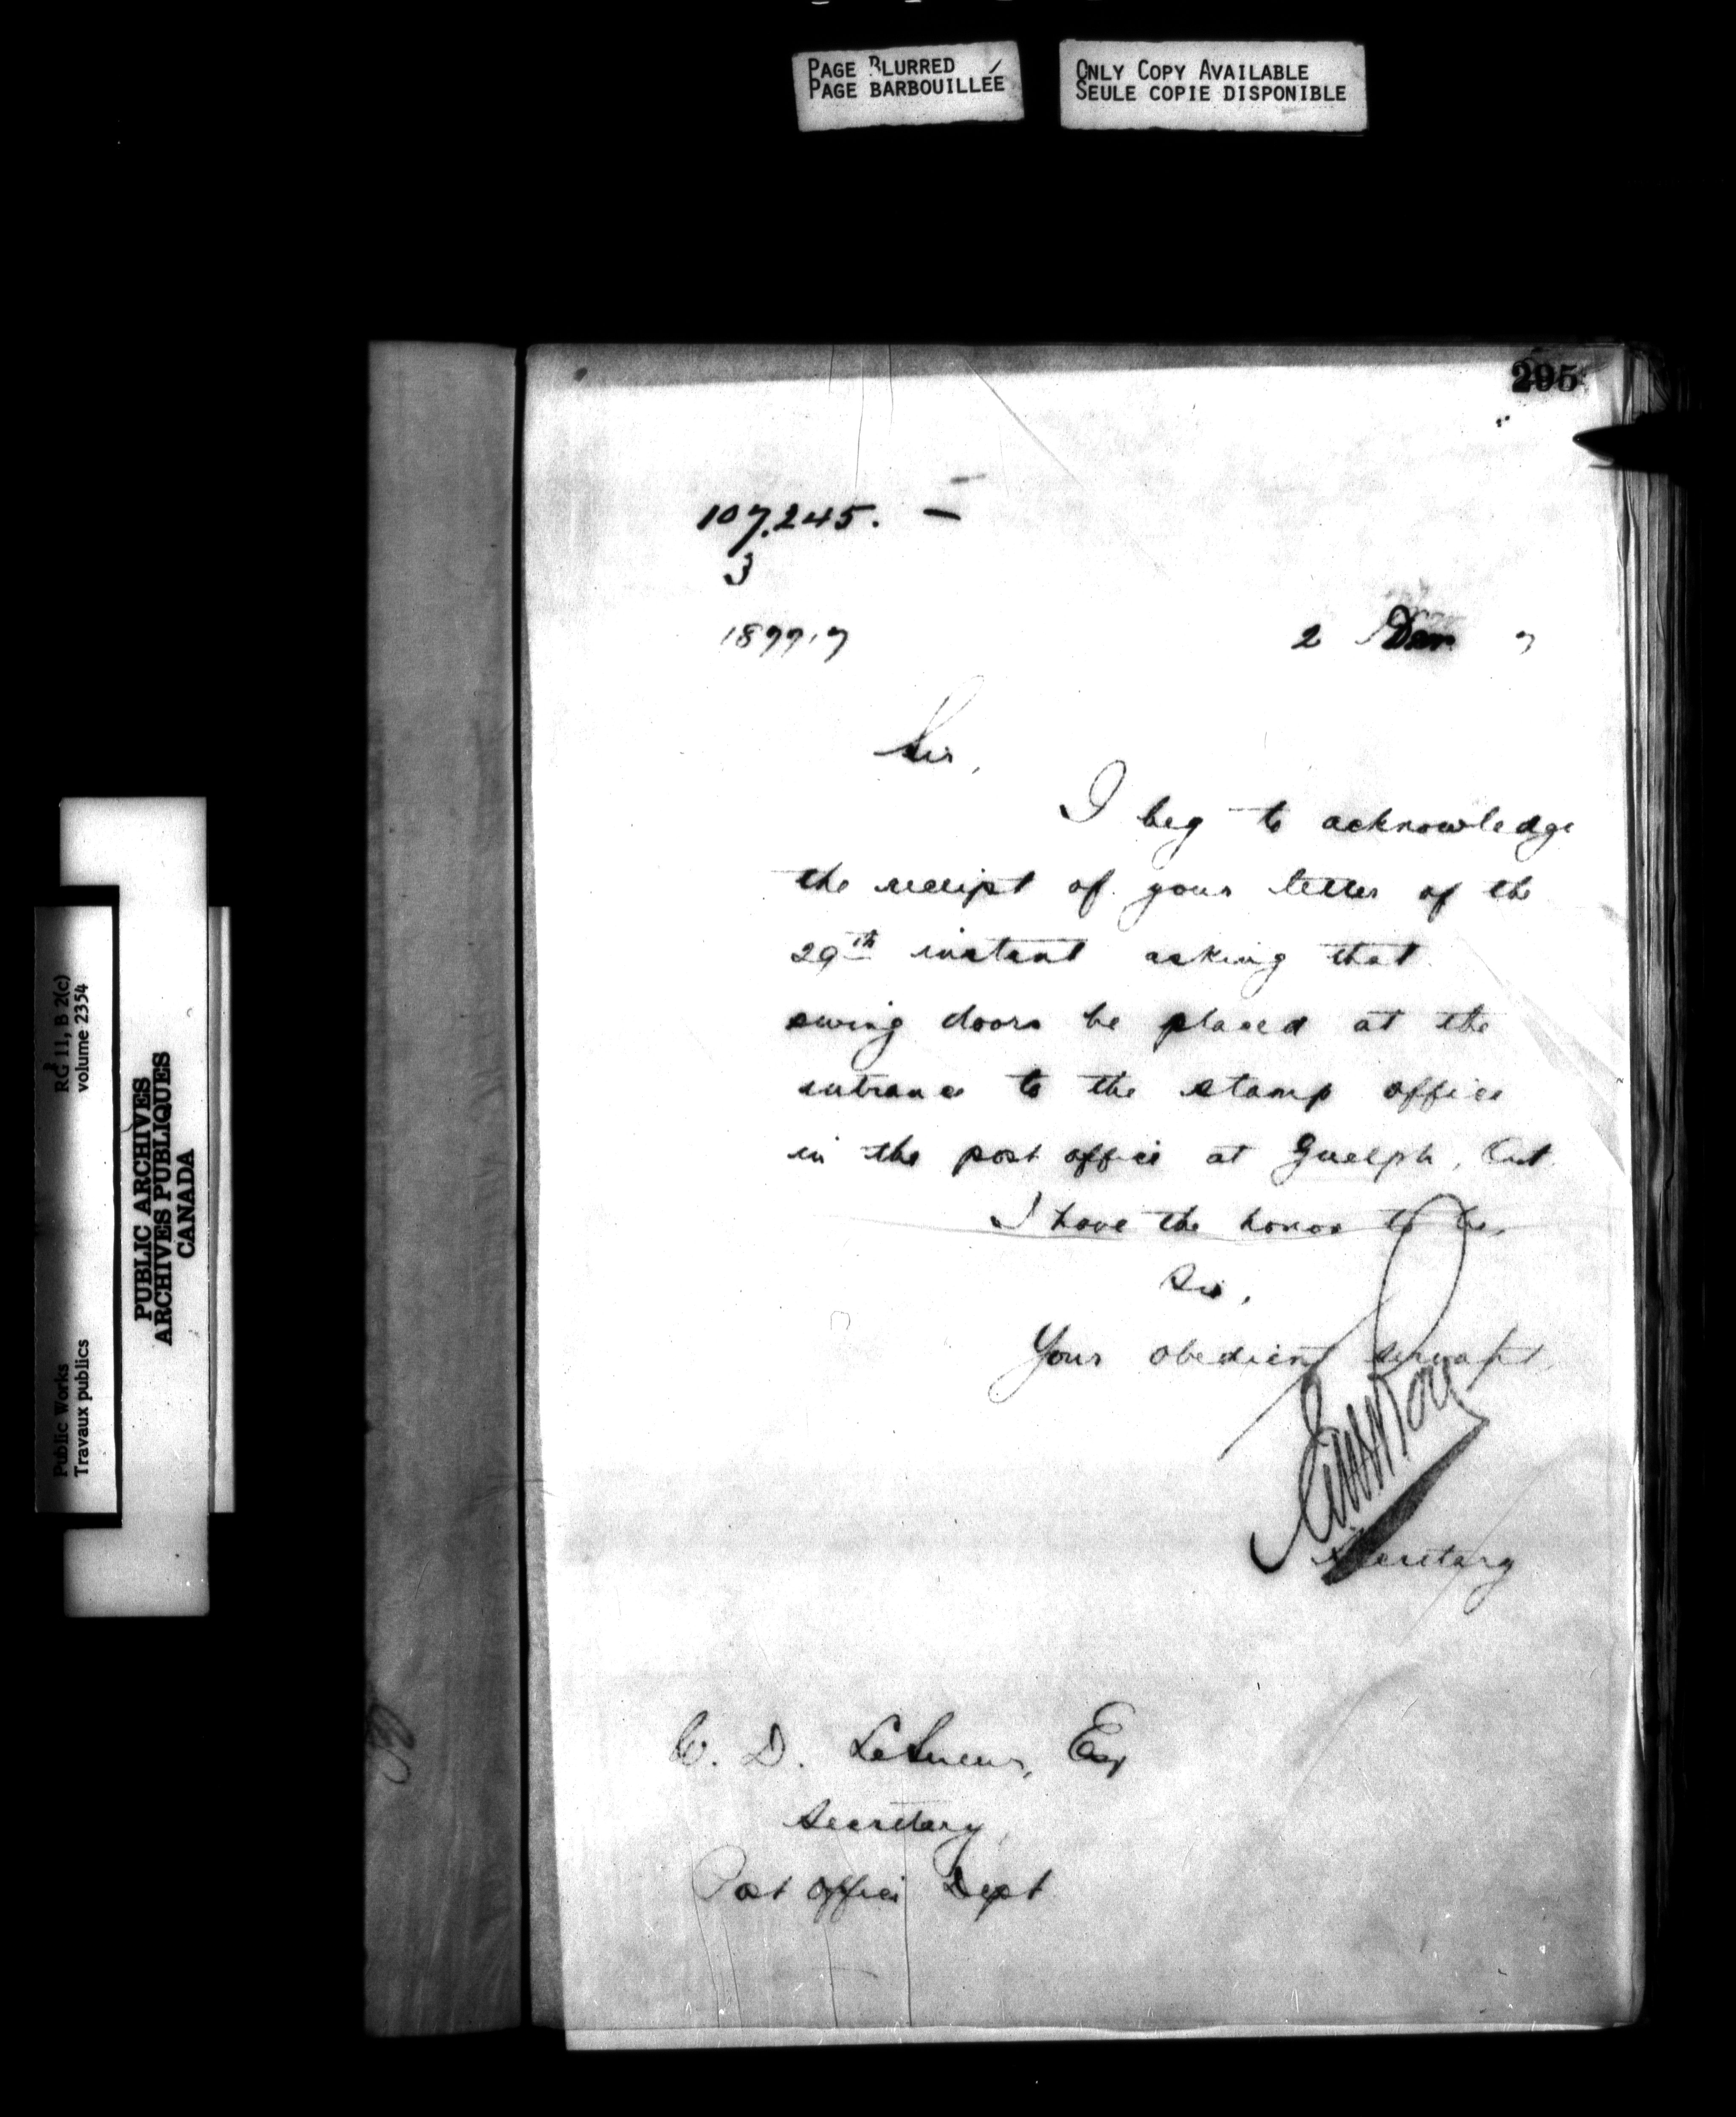 PAGE BLURRED
PAGE BARBOUILLÉE
ONLY COPY AVAILABLE
SEULE COPIE DISPONIBLE
295
107.245. -
3
187717
2 Dec 7
Sir,
I beg to acknowledge
the receipt of your letter of the
29th instant asking that
swing doors be placed at the
entrance to the stamp office
in the post office at Guelph, Ont.
I have the honor to be,
Sir,
Your obedient servant,
Secretary
W. D. LeSueur, Esq
Secretary,
Post Office Dept
RG 11, B 2(c)
volume 2354
Public Works
Travaux publics
PUBLIC ARCHIVES
ARCHIVES PUBLIQUES
CANADA